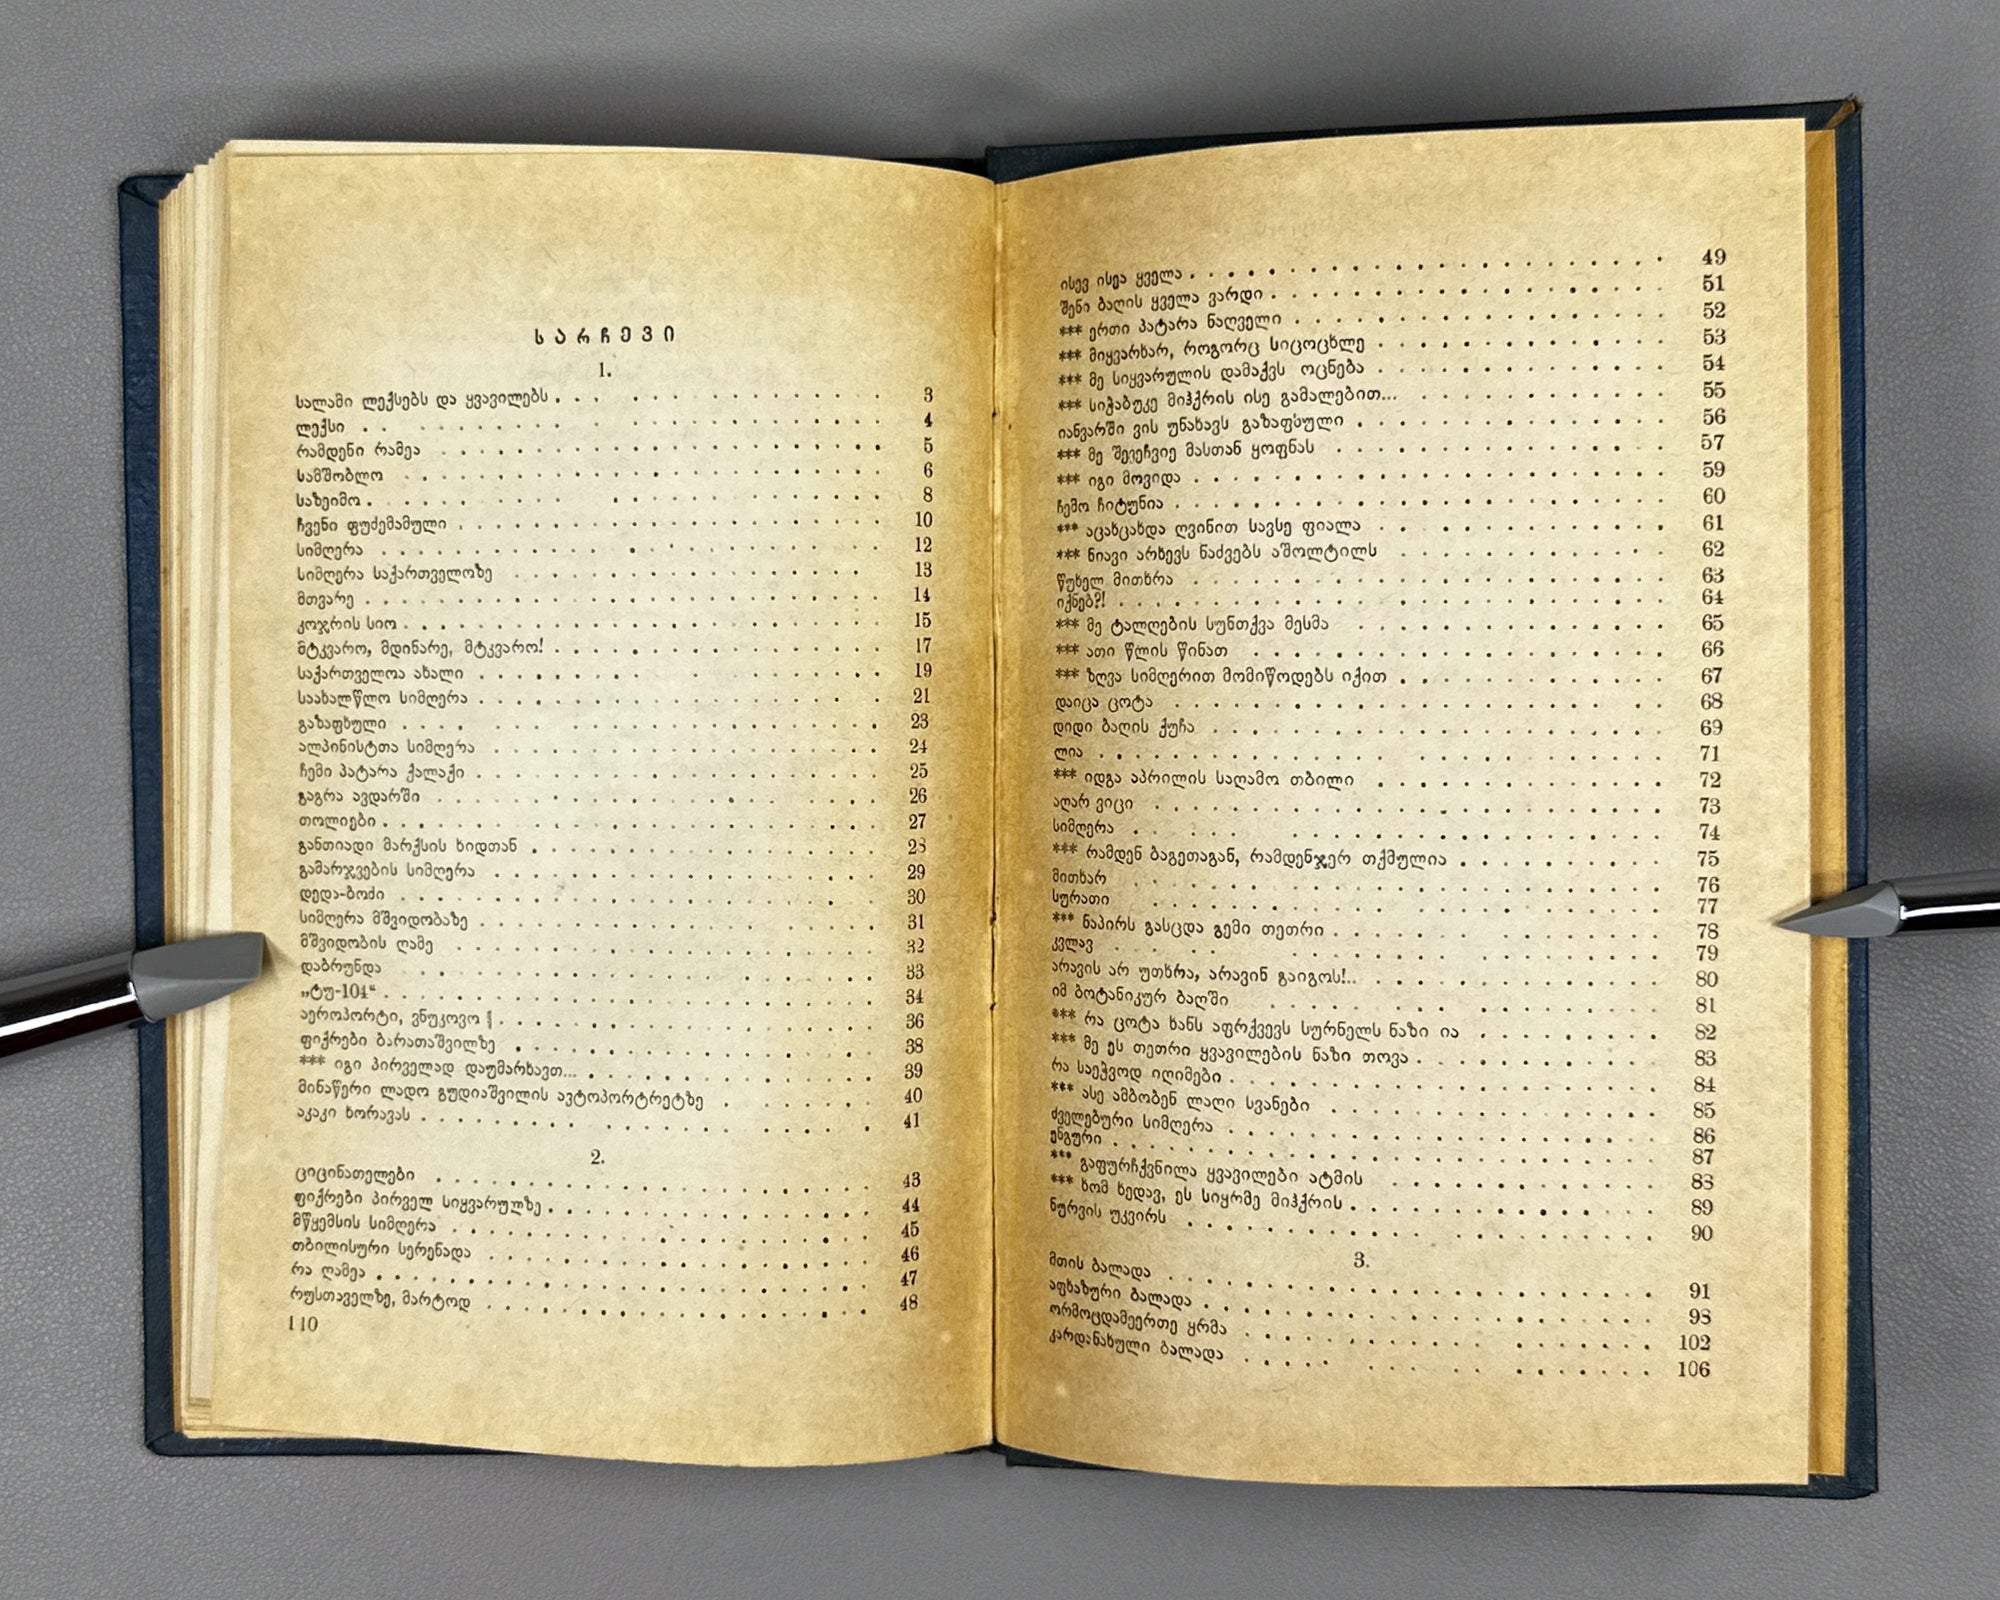 სარჩევი
1.
სალამი ლექსებს და ყვავილებს . . . . . . . . . . . . 3
ლექსი . . . . . . . . . . . . 4
რამდენი რამეა . . . . . . . . . . . . 5
სამშობლო . . . . . . . . . . . . 6
საზეიმო . . . . . . . . . . . . 8
ჩვენი ფუძემამული . . . . . . . . . . . . 10
სიმღერა . . . . . . . . . . . . 12
სიმღერა საქართველოზე . . . . . . . . . . . . 13
მთვარე . . . . . . . . . . . . 14
კოჯრის სიო . . . . . . . . . . . . 15
მტკვარო, მდინარე, მტკვარო! . . . . . . . . . . . . 17
საქართველოა ახალი . . . . . . . . . . . . 19
საახალწლო სიმღერა . . . . . . . . . . . . 21
გაზაფხული . . . . . . . . . . . . 23
ალპინისტთა სიმღერა . . . . . . . . . . . . 24
ჩემი პატარა ქალაქი . . . . . . . . . . . . 25
გაგრა ავდარში . . . . . . . . . . . . 26
თოლიები . . . . . . . . . . . . 27
განთიადი მარქსის ხიდთან . . . . . . . . . . . . 28
გამარჯვების სიმღერა . . . . . . . . . . . . 29
დედა-ბოძი . . . . . . . . . . . . 30
სიმღერა მშვიდობაზე . . . . . . . . . . . . 31
მშვიდობის ღამე . . . . . . . . . . . . 32
დაბრუნდა . . . . . . . . . . . . 33
„ტუ-104“ . . . . . . . . . . . . 34
აეროპორტი, ვნუკოვო . . . . . . . . . . . . 36
ფიქრები ბარათაშვილზე . . . . . . . . . . . . 38
*** იგი პირველად დაუმარხავთ... . . . . . . . . . . . . 39
მინაწერი ლადო გუდიაშვილის ავტოპორტრეტზე . . . . . . 40
აკაკი ხორავას . . . . . . . . . . . . 41
2.
ციცინათელები . . . . . . . . . . . . 43
ფიქრები პირველ სიყვარულზე . . . . . . . . . . . . 44
მწყემსის სიმღერა . . . . . . . . . . . . 45
თბილისური სერენადა . . . . . . . . . . . . 46
რა ღამეა . . . . . . . . . . . . 47
რუსთაველზე, მარტოდ . . . . . . . . . . . . 48
110
ისევ ისეა ყველა . . . . . . . . . . . . 49
შენი ბაღის ყველა ვარდი . . . . . . . . . . . . 51
*** ერთი პატარა ნაღველი . . . . . . . . . . . . 52
*** მიყვარხარ, როგორც სიცოცხლე . . . . . . . . . . . . 53
*** მე სიყვარულის დამაქვს ოცნება . . . . . . . . . . . . 54
*** სიჭაბუკე მიჰქრის ისე გამალებით... . . . . . . . . . . 55
იანვარში ვის უნახავს გაზაფხული . . . . . . . . . . . . 56
*** მე შევეჩვიე მასთან ყოფნას . . . . . . . . . . . . 57
*** იგი მოვიდა . . . . . . . . . . . . 59
ჩემო ჩიტუნია . . . . . . . . . . . . 60
*** აცახცახდა ღვინით სავსე ფიალა . . . . . . . . . . . . 61
*** ნიავი არხევს ნაძვებს აშოლტილს . . . . . . . . . . . . 62
წუხელ მითხრა . . . . . . . . . . . . 63
იქნებ?! . . . . . . . . . . . . 64
*** მე ტალღების სუნთქვა მესმა . . . . . . . . . . . . 65
*** ათი წლის წინათ . . . . . . . . . . . . 66
*** ზღვა სიმღერით მომიწოდებს იქით . . . . . . . . . . 67
დაიცა ცოტა . . . . . . . . . . . . 68
დიდი ბაღის ქუჩა . . . . . . . . . . . . 69
ლია . . . . . . . . . . . . 71
*** იდგა აპრილის საღამო თბილი . . . . . . . . . . . . 72
აღარ ვიცი . . . . . . . . . . . . 73
სიმღერა . . . . . . . . . . . . 74
*** რამდენ ბაგეთაგან, რამდენჯერ თქმულია . . . . . . . . 75
მითხარ . . . . . . . . . . . . 76
სურათი . . . . . . . . . . . . 77
*** ნაპირს გასცდა გემი თეთრი . . . . . . . . . . . . 78
კვლავ . . . . . . . . . . . . 79
არავის არ უთხრა, არავინ გაიგოს!.. . . . . . . . . . . . 80
იმ ბოტანიკურ ბაღში . . . . . . . . . . . . 81
*** რა ცოტა ხანს აფრქვევს სურნელს ნაზი ია . . . . . . . 82
*** მე ეს თეთრი ყვავილების ნაზი თოვა . . . . . . . . . 83
რა საეჭვოდ იღიმები . . . . . . . . . . . . 84
*** ასე ამბობენ ლაღი სვანები . . . . . . . . . . . . 85
ძველებური სიმღერა . . . . . . . . . . . . 86
ენგური . . . . . . . . . . . . 87
*** გაფურჩქვნილა ყვავილები ატმის . . . . . . . . . . . . 88
*** ხომ ხედავ, ეს სიყრმე მიჰქრის . . . . . . . . . . . . 89
ნურვის უკვირს . . . . . . . . . . . . 90
3.
მთის ბალადა . . . . . . . . . . . . 91
აფხაზური ბალადა . . . . . . . . . . . . 98
ორმოცდამეერთე ყრმა . . . . . . . . . . . . 102
კარდანახული ბალადა . . . . . . . . . . . . 106